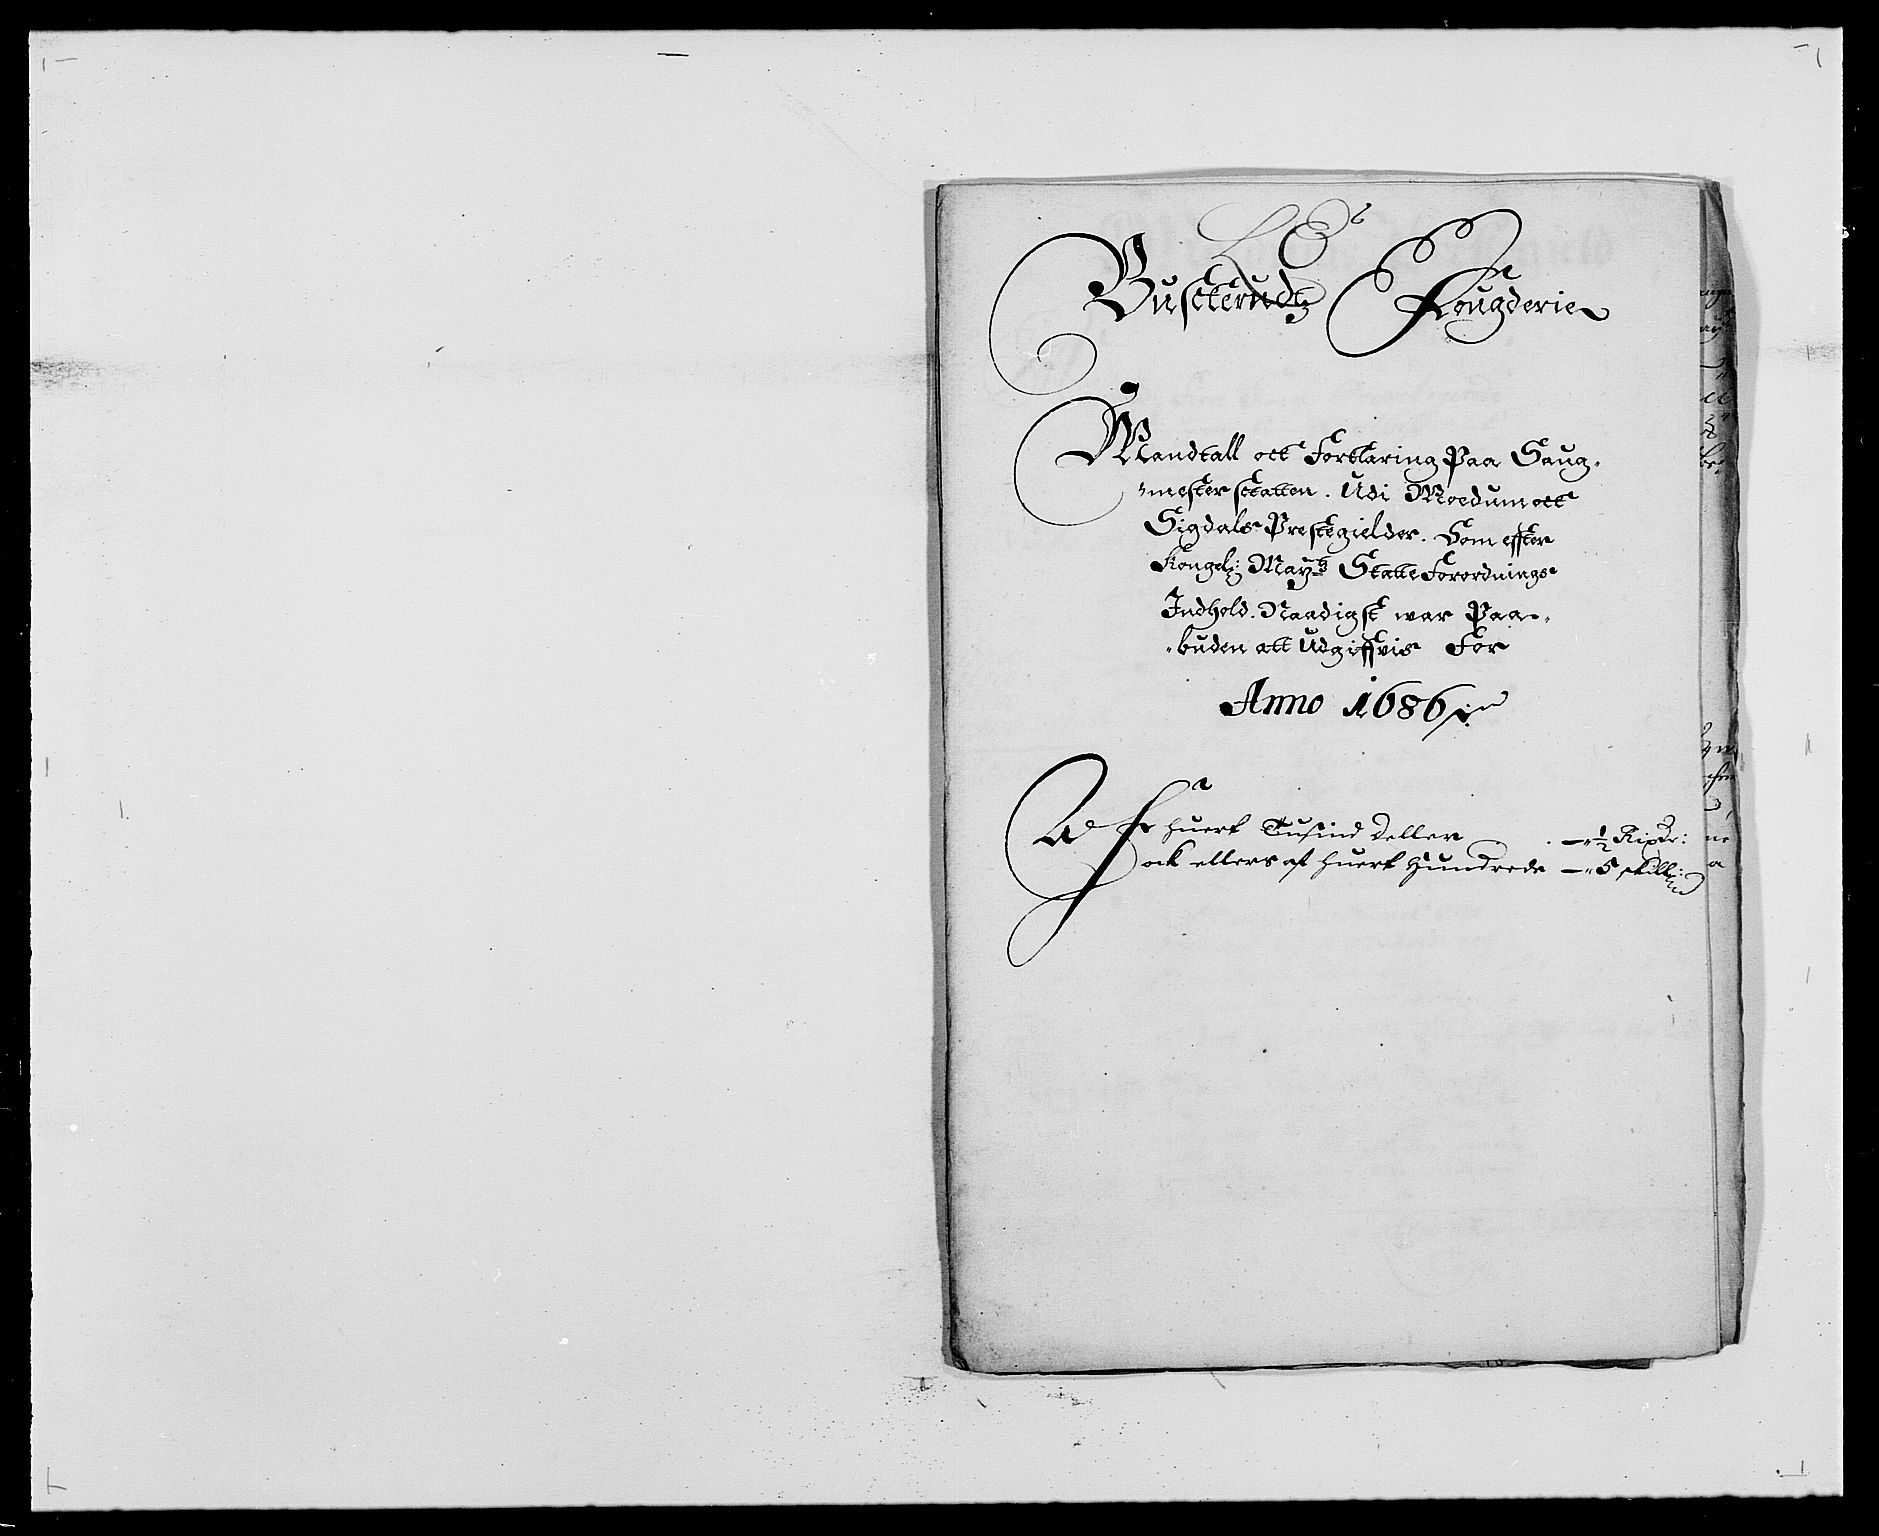 Buskerudtz Fougderie
Mandtall ock Forklaring Paa Saug-
mester skatten. Udi Moedum ock
Sigdals Prestegielder. Som effter
Kongel: Mayts Skatte Forordnings
Indhold. Naadigst war Paa-
buden att Udgiffvis For
Anno 1686
Af huert Tusind deller — 1/2 Rixdr:
ock ellers af huert Hundrede — 5 skill: